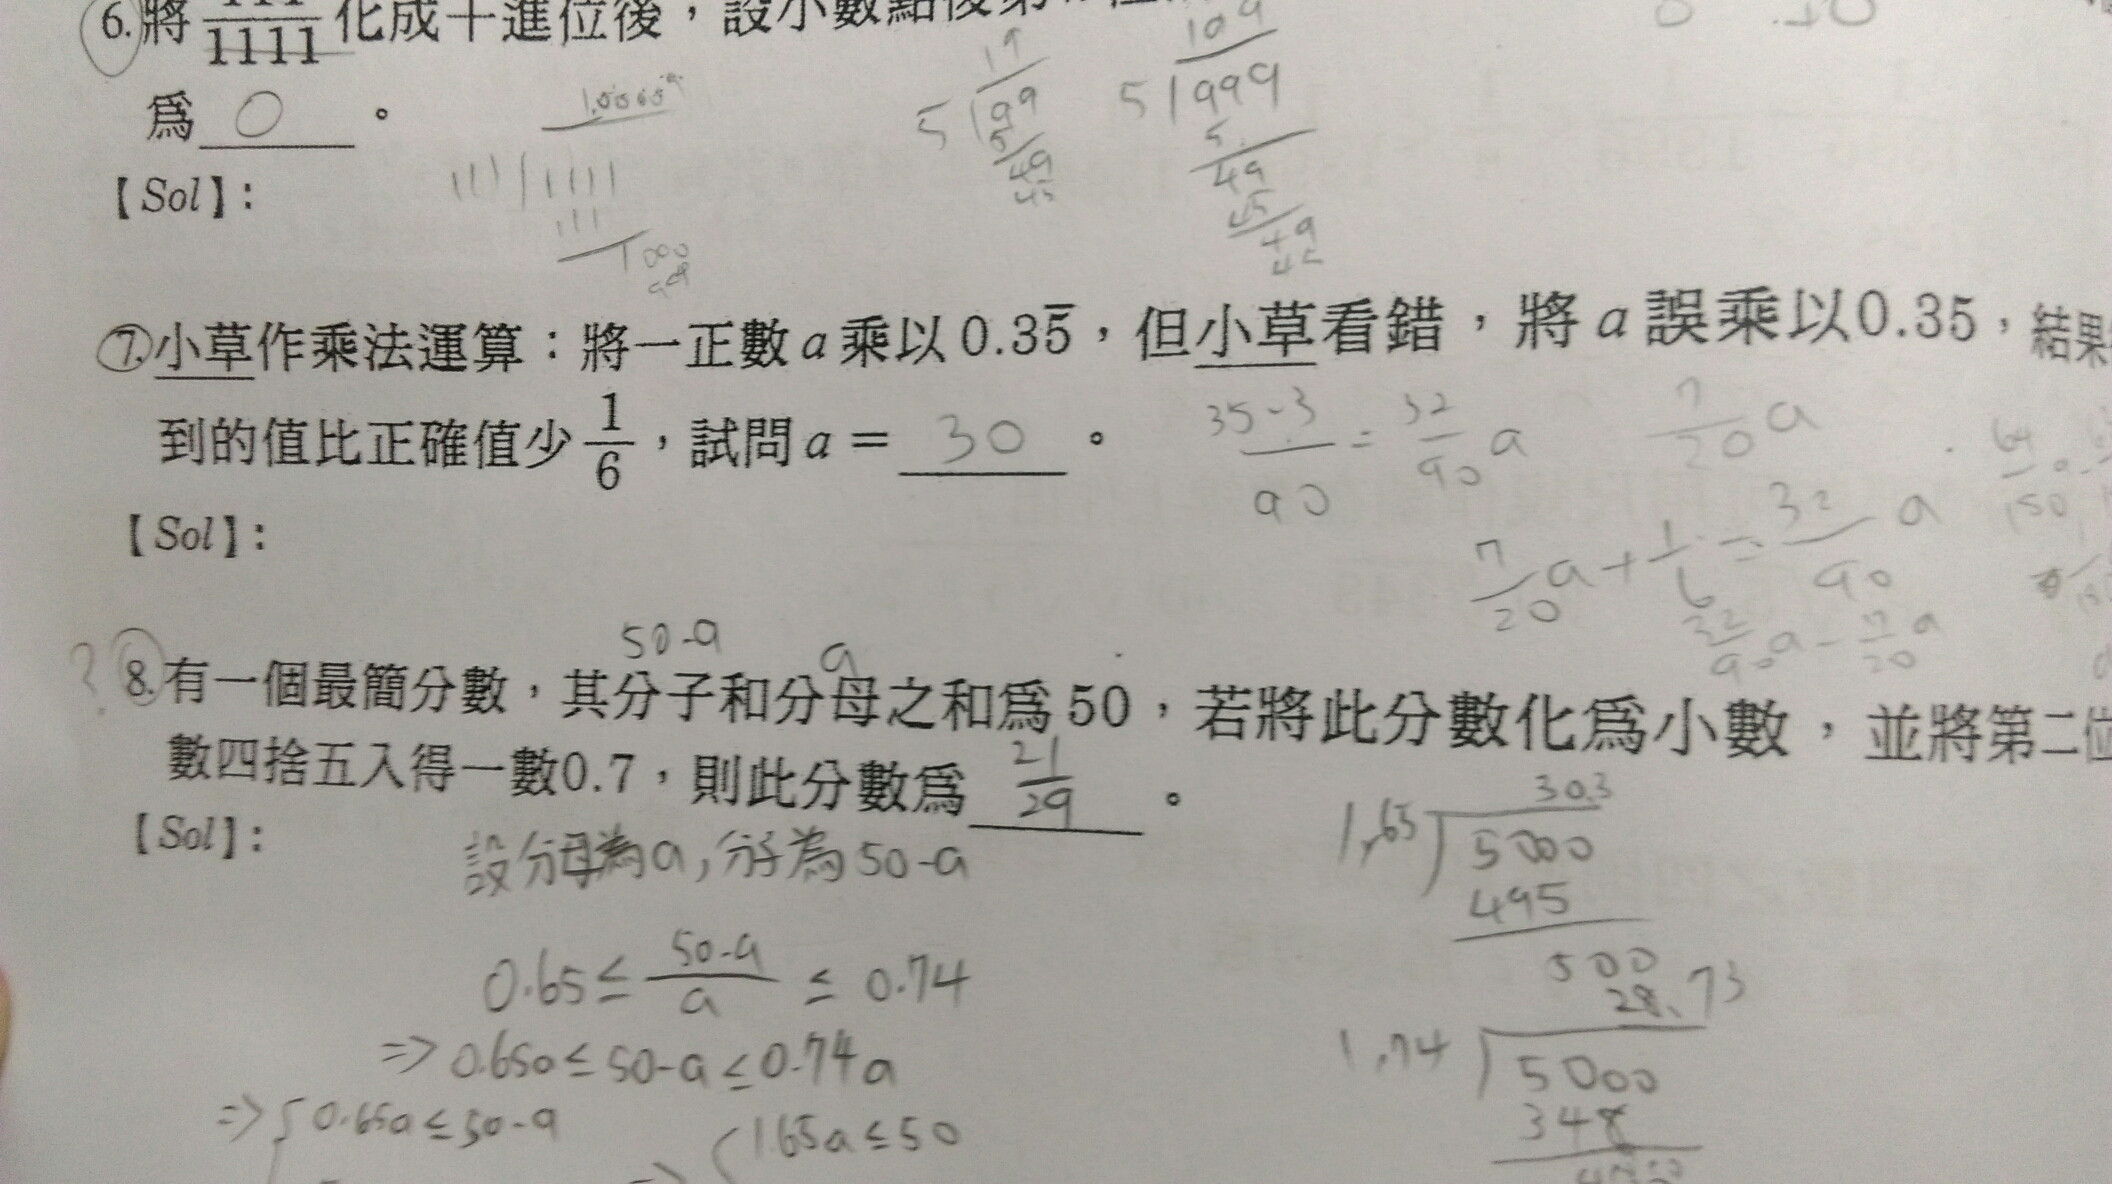 6. 將 111/1111 化成十進位後，設小數點後第
為 0 。
【Sol】：
111 1111
111
1000
19
5 99
5
49
45
199
5 999
5
49
45
49
45
⑦ 小草作乘法運算：將一正數 a 乘以 0.35̅，但小草看錯，將 a 誤乘以0.35，結果
到的值比正確值少 1/6，試問 a = 30 。
35-3/90 = 32/90 a
7/20 a
7/20 a + 1/6 = 32/90 a
32/90 a - 7/20 a
【Sol】：
50-a
a
? 8. 有一個最簡分數，其分子和分母之和為 50，若將此分數化為小數，並將第二位
數四捨五入得一數0.7，則此分數為 21/29 。
【Sol】：
設分母為a，分子為50-a
0.65 ≤ 50-a/a ≤ 0.74
⇒ 0.65a ≤ 50-a ≤ 0.74a
⇒ { 0.65a ≤ 50-a
⇒ { 1.65a ≤ 50
30.3
1.65 5000
495
500
28.73
1.74 5000
348